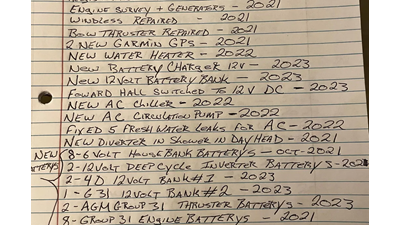 ENGINE SURVEY + GENERATERS - 2021
WINDLESS REPAIRED - 2021
BOW THRUSTER REPAIRED - 2021
2 NEW GARMIN GPS - 2021
NEW WATER HEATER - 2022
NEW BATTERY CHARGER 12V - 2023
NEW 12VOLT BATTERY BANK - 2023
FOWARD HALL SWITCHED TO 12V DC - 2023
NEW AC CHILLER - 2022
NEW AC CIRCULATION PUMP - 2022
FIXED 5 FRESH WATER LEAKS FOR AC - 2022
NEW DIVERTER IN SHOWER IN DAY HEAD - 2021
NEW 8-6 VOLT HOUSE BANK BATTERYS - OCT-2021
TTERYS 2-12VOLT DEEP CYCLE INVERTER BATTERYS - 2023
2-4D 12VOLT BANK #1 - 2023
1-G31 12VOLT BANK #2 - 2023
2-AGM GROUP 31 THRUSTER BATTERYS - 2023
8-GROUP 31 ENGINE BATTERYS - 2021